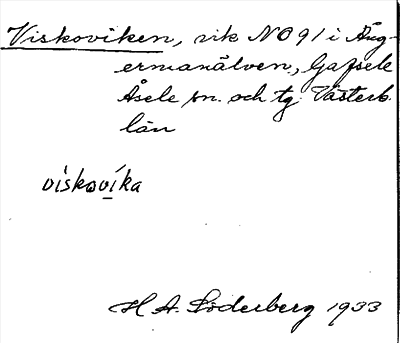 Viskoviken, vik NO 91 i Ång-
ermanälven, Gafsele
Åsele sn. och tg. Västerb.
län
viskovíka
H A. Söderberg 1933